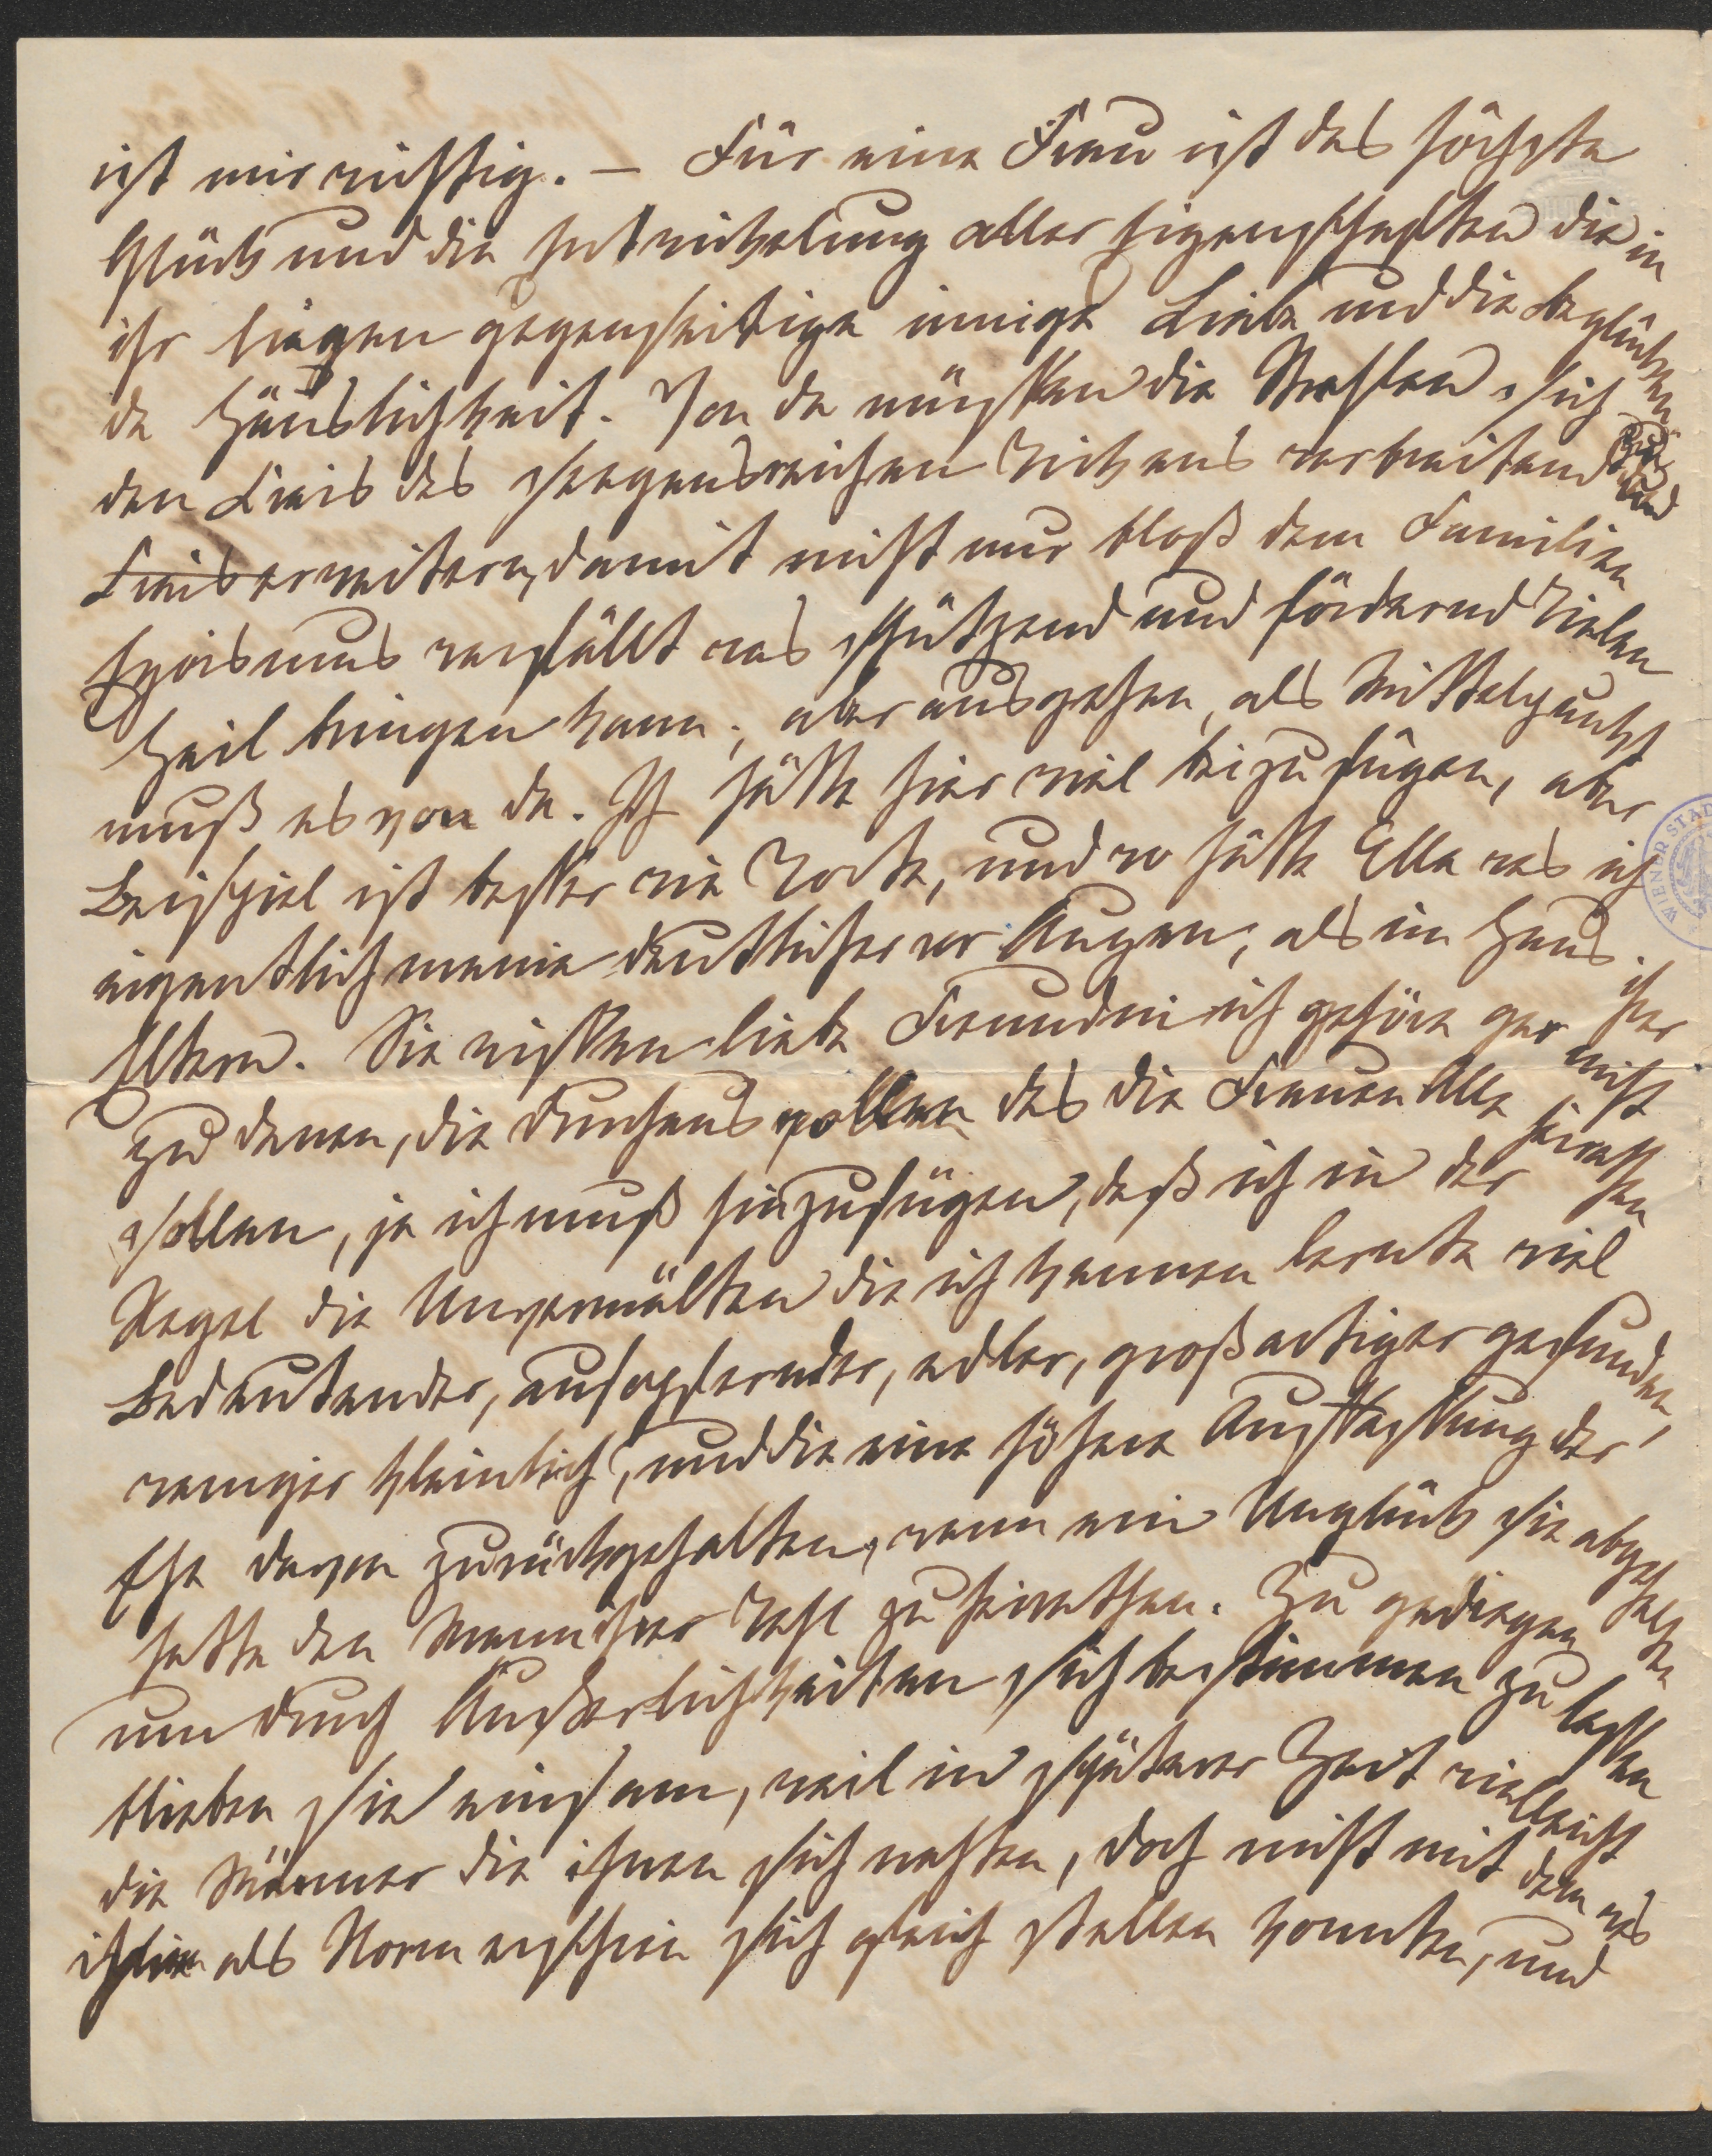 ist mir wichtig. – Für eine Frau ist das höchste
Glück und die Entwickelung aller Eigenschaften die in
ihr liegen gegenseitige innige Liebe und die beglücken
de Häuslichkeit. Von da müssen die Strahlen sich
den Kreis des seegensreichen Wirkens verbreiten und
Kreis erweitern, damit nicht nur bloß dem Familien
Egoismus verfällt was schützend und fördernd Vielen
Heil bringen kann; aber ausgehen, als Mittelpunkt
muß es von da. Ich hätte hier viel beizufügen, aber
Beispiel ist besser wie Worte, und wo hätte Ella was ich
eigentlich meine deutlicher vor Augen, als im Haus ihrer
Eltern. Sie wissen liebe Freundin ich gehöre gar nicht
zu denen, die durchaus wollen das die Frauen Alle heirathen
sollen, ja ich muß hinzufügen, daß ich in der
Regel die Unvermälten die ich kennen lernte viel
Bedeutender, aufopfernder, edler, großartiger gefunden,
weniger kleinlich, und die eine höhere Auffassung der
Ehe davon zurückgehalten, wenn ein Unglück sie abgehalten
hatte den Mann ihrer Wahl zu heirathen. Zu gediegen
um durch Äußerlichkeiten sich bestimmen zu lassen
blieben sie einsam, weil in späterer Zeit vielleicht
die Männer die ihnen sich nahten, doch nicht mit dem was
ihnen als Norm erschien sich gleich stellen konnten, und
WIENER STAD